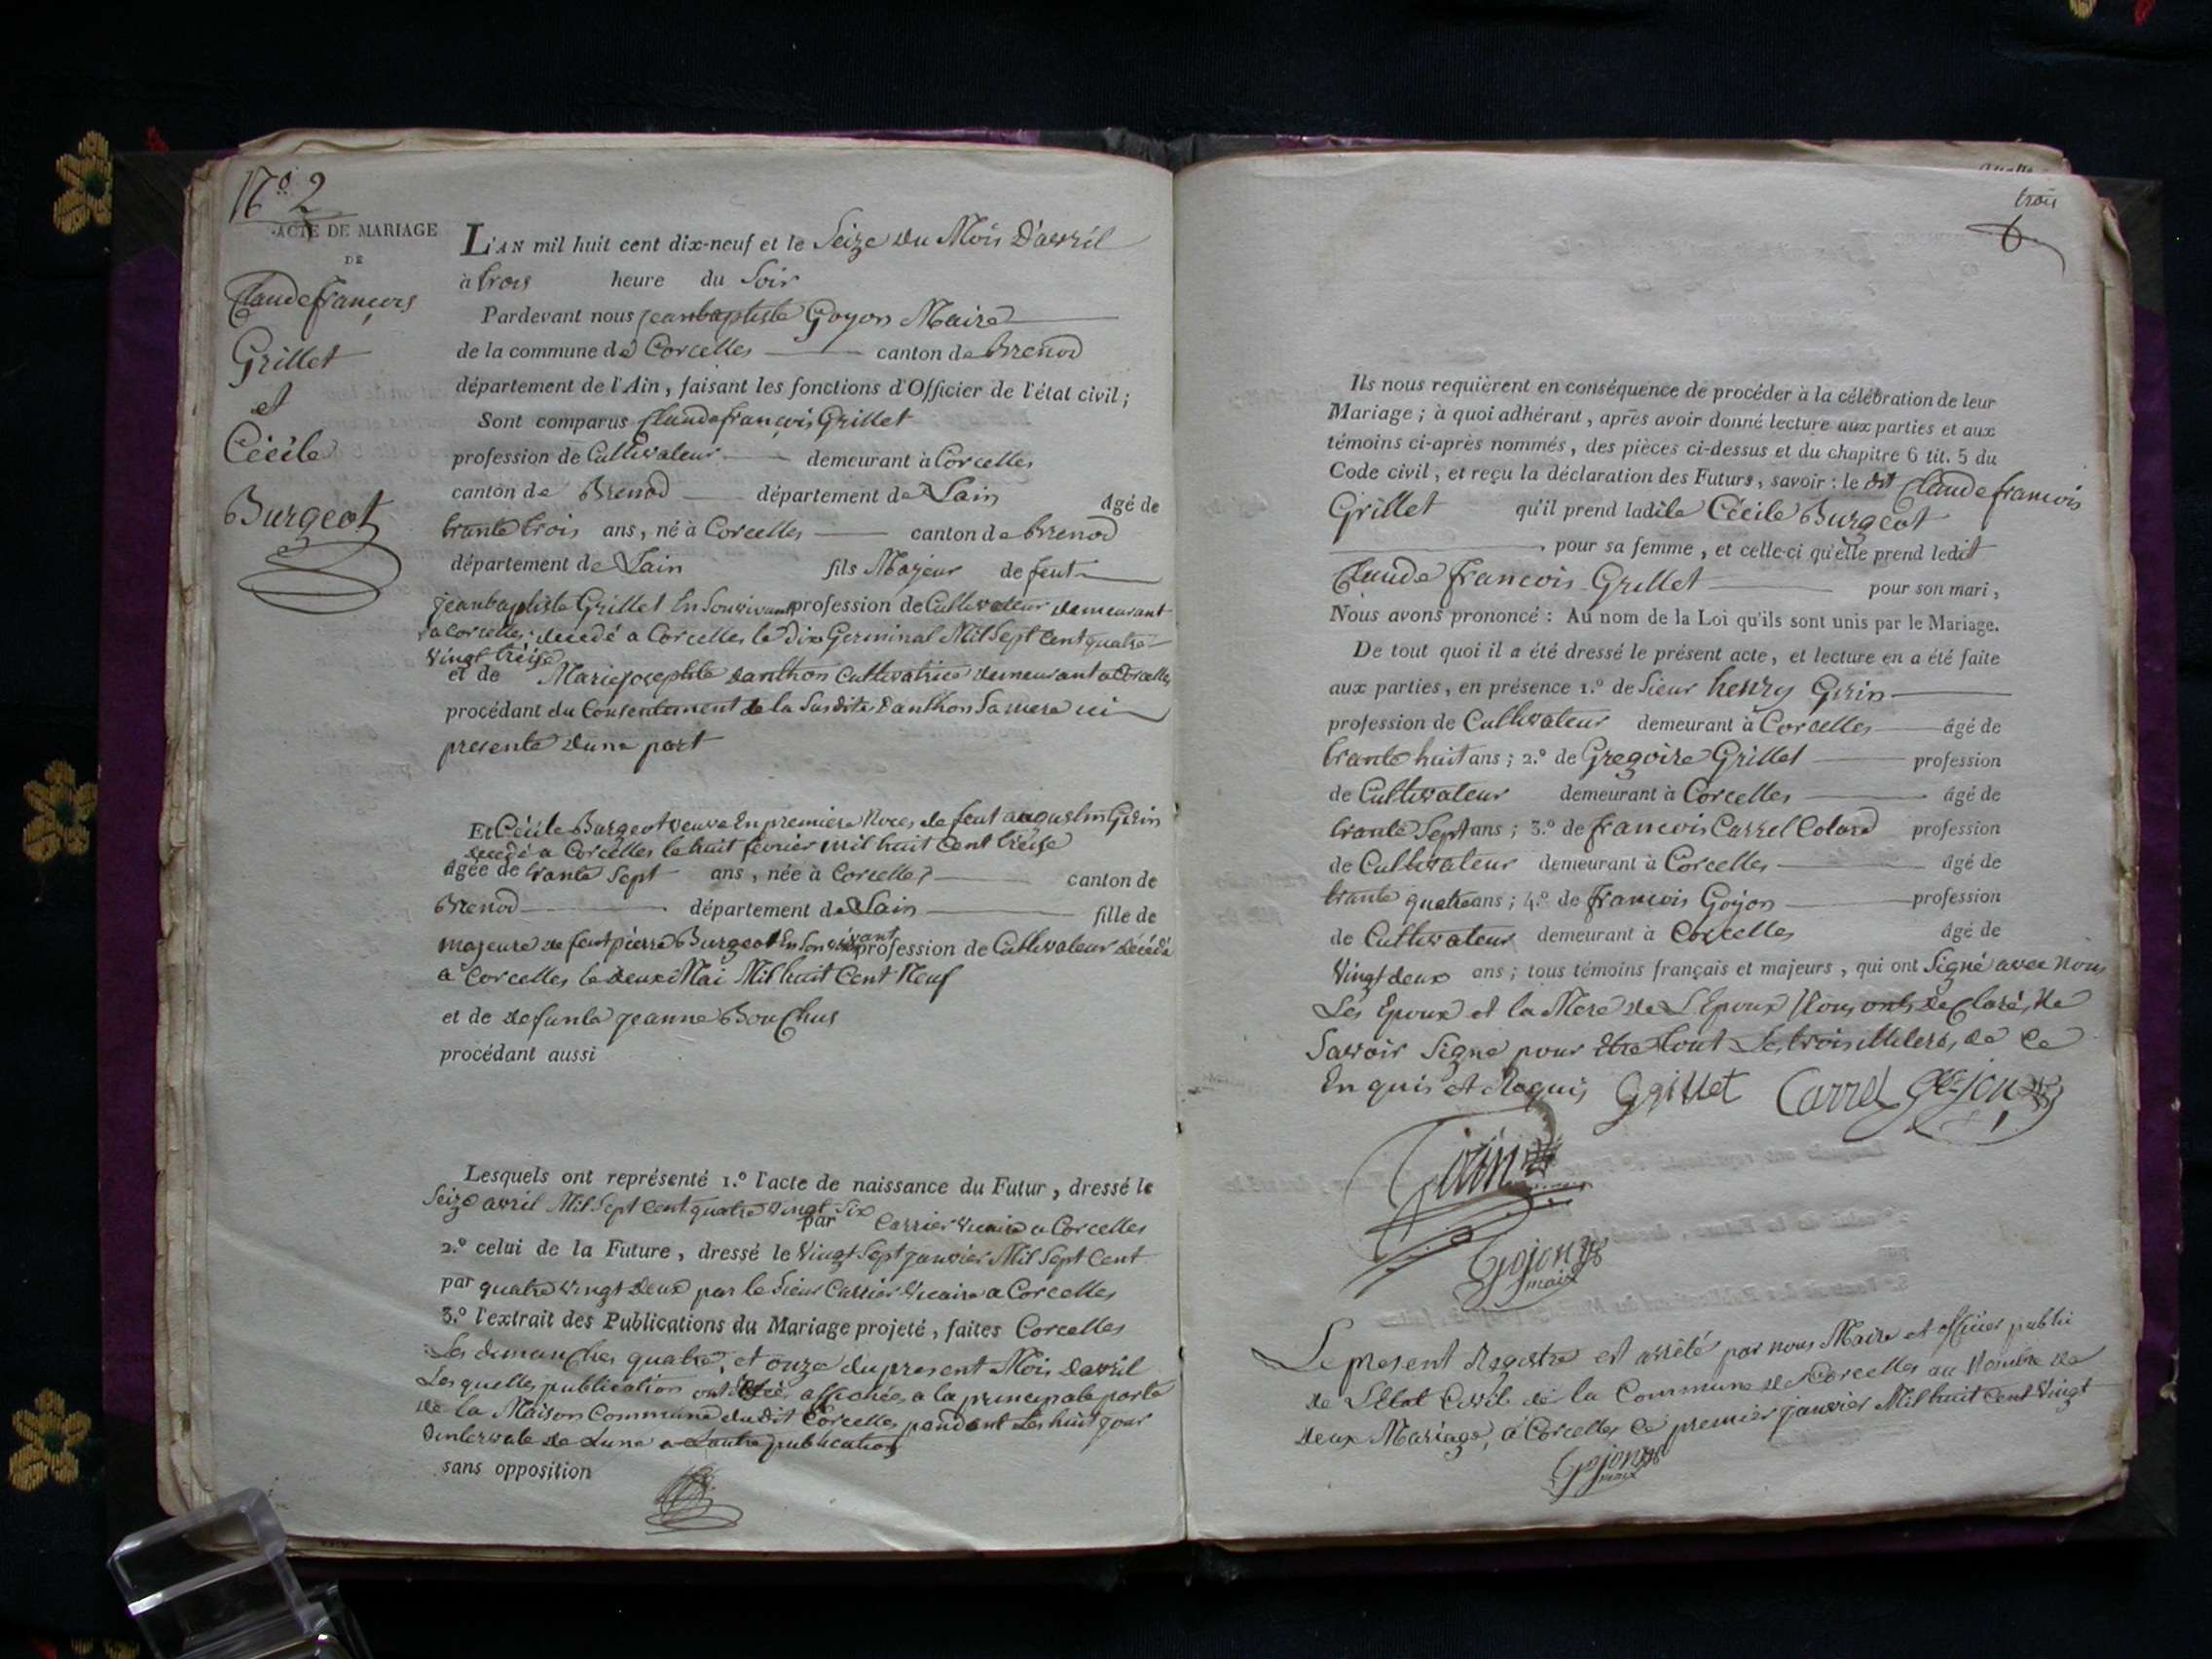 N.º 2
ACTE DE MARIAGE
DE
Claude françois
Grillet
et
Cécile
Burgeot
L'AN mil huit cent dix-neuf et le Seize du Mois D'avril
à trois heure du Soir
Pardevant nous jeanbaptiste Goyon Maire
de la commune de Corcelles canton de Brenod
département de l'Ain, faisant les fonctions d'Officier de l'état civil;
Sont comparus Claude françois Grillet
profession de Cultivateur demeurant à Corcelles
canton de Brenod département de Lain âgé de
trante trois ans, né à Corcelles canton de Brenod
département de Lain fils Majeur de feut
jeanbaptiste Grillet En Son vivant profession de Cultivateur demeurant
a Corcelles decedé a Corcelles le Dix Germinal Mil Sept Cent quatre
Vingt treise
et de Marie josephte danthon Cultivatrice demeurant a Corcelles
procédant du Consentement de la Susdite Danthon Sa mere ici
presente dune part
Et Cécile Burgeot veuve En premiere Noces de feut augustin Girin
decedé a Corcelles le huit fevrier mil huit Cent treise
âgée de trante Sept ans, née à Corcelles canton de
Brenod département de Lain fille de
majeure de feut pierre Burgeot En Son vivant profession de Cultivateur décédé
a Corcelles le deux Mai Mil huit Cent Neuf
et de defunte jeanne Bouchus
procédant aussi
Lesquels ont représenté 1.º l'acte de naissance du Futur, dressé le
Seize avril Mil Sept Cent quatre Vingt Six
par Carrier Vicaire a Corcelles
2.º celui de la Future, dressé le Vingt Sept janvier Mil Sept Cent
par quatre Vingt Deux par le Sieur Carrier Vicaire a Corcelles
3.º l'extrait des Publications du Mariage projeté, faites Corcelles
Les dimanches quatre, et onze du present Mois Davril
Les quelles publication ont étées affichées a la principale porte
de la Maison Commune dudit Corcelles pendant Les huit jour
Dintervale de Lune a Lautre publication
sans opposition
trois
6
Ils nous requièrent en conséquence de procéder à la célébration de leur
Mariage; à quoi adhérant, après avoir donné lecture aux parties et aux
témoins ci-après nommés, des pièces ci-dessus et du chapitre 6 tit. 5 du
Code civil, et reçu la déclaration des Futurs, savoir: le dit Claude francois
Grillet qu'il prend ladite Cécile Burgeot
, pour sa femme, et celle-ci qu'elle prend ledit
Claude francois Grillet pour son mari,
Nous avons prononcé: Au nom de la Loi qu'ils sont unis par le Mariage.
De tout quoi il a été dressé le présent acte, et lecture en a été faite
aux parties, en présence 1.º de Sieur henry Girin
profession de Cultivateur demeurant à Corcelles âgé de
trante huit ans; 2.º de Gregoire Grillet profession
de Cultivateur demeurant à Corcelles âgé de
trante Sept ans; 3.º de francois Carrel Colard profession
de Cultivateur demeurant à Corcelles âgé de
trante quatre ans; 4.º de francois Goyon profession
de Cultivateur demeurant à Corcelles âgé de
Vingt deux ans; tous témoins français et majeurs, qui ont Signé avec Nous
Les Epoux et la Mere de L'Epoux Nous onts declaré Ne
Savoir Signe pour Etre tout Les trois illeteré, de Ce
En quis et Requis Grillet Carrel Gojon
Girin
Gojon
maire
Le present Registre est arrêté par nous Maire et officier public
de Létat Civil de la Commune de Corcelles au Nombre de
deux Mariage, a Corcelles Ce premier janvier Mil huit Cent Vingt
Gojon
maire